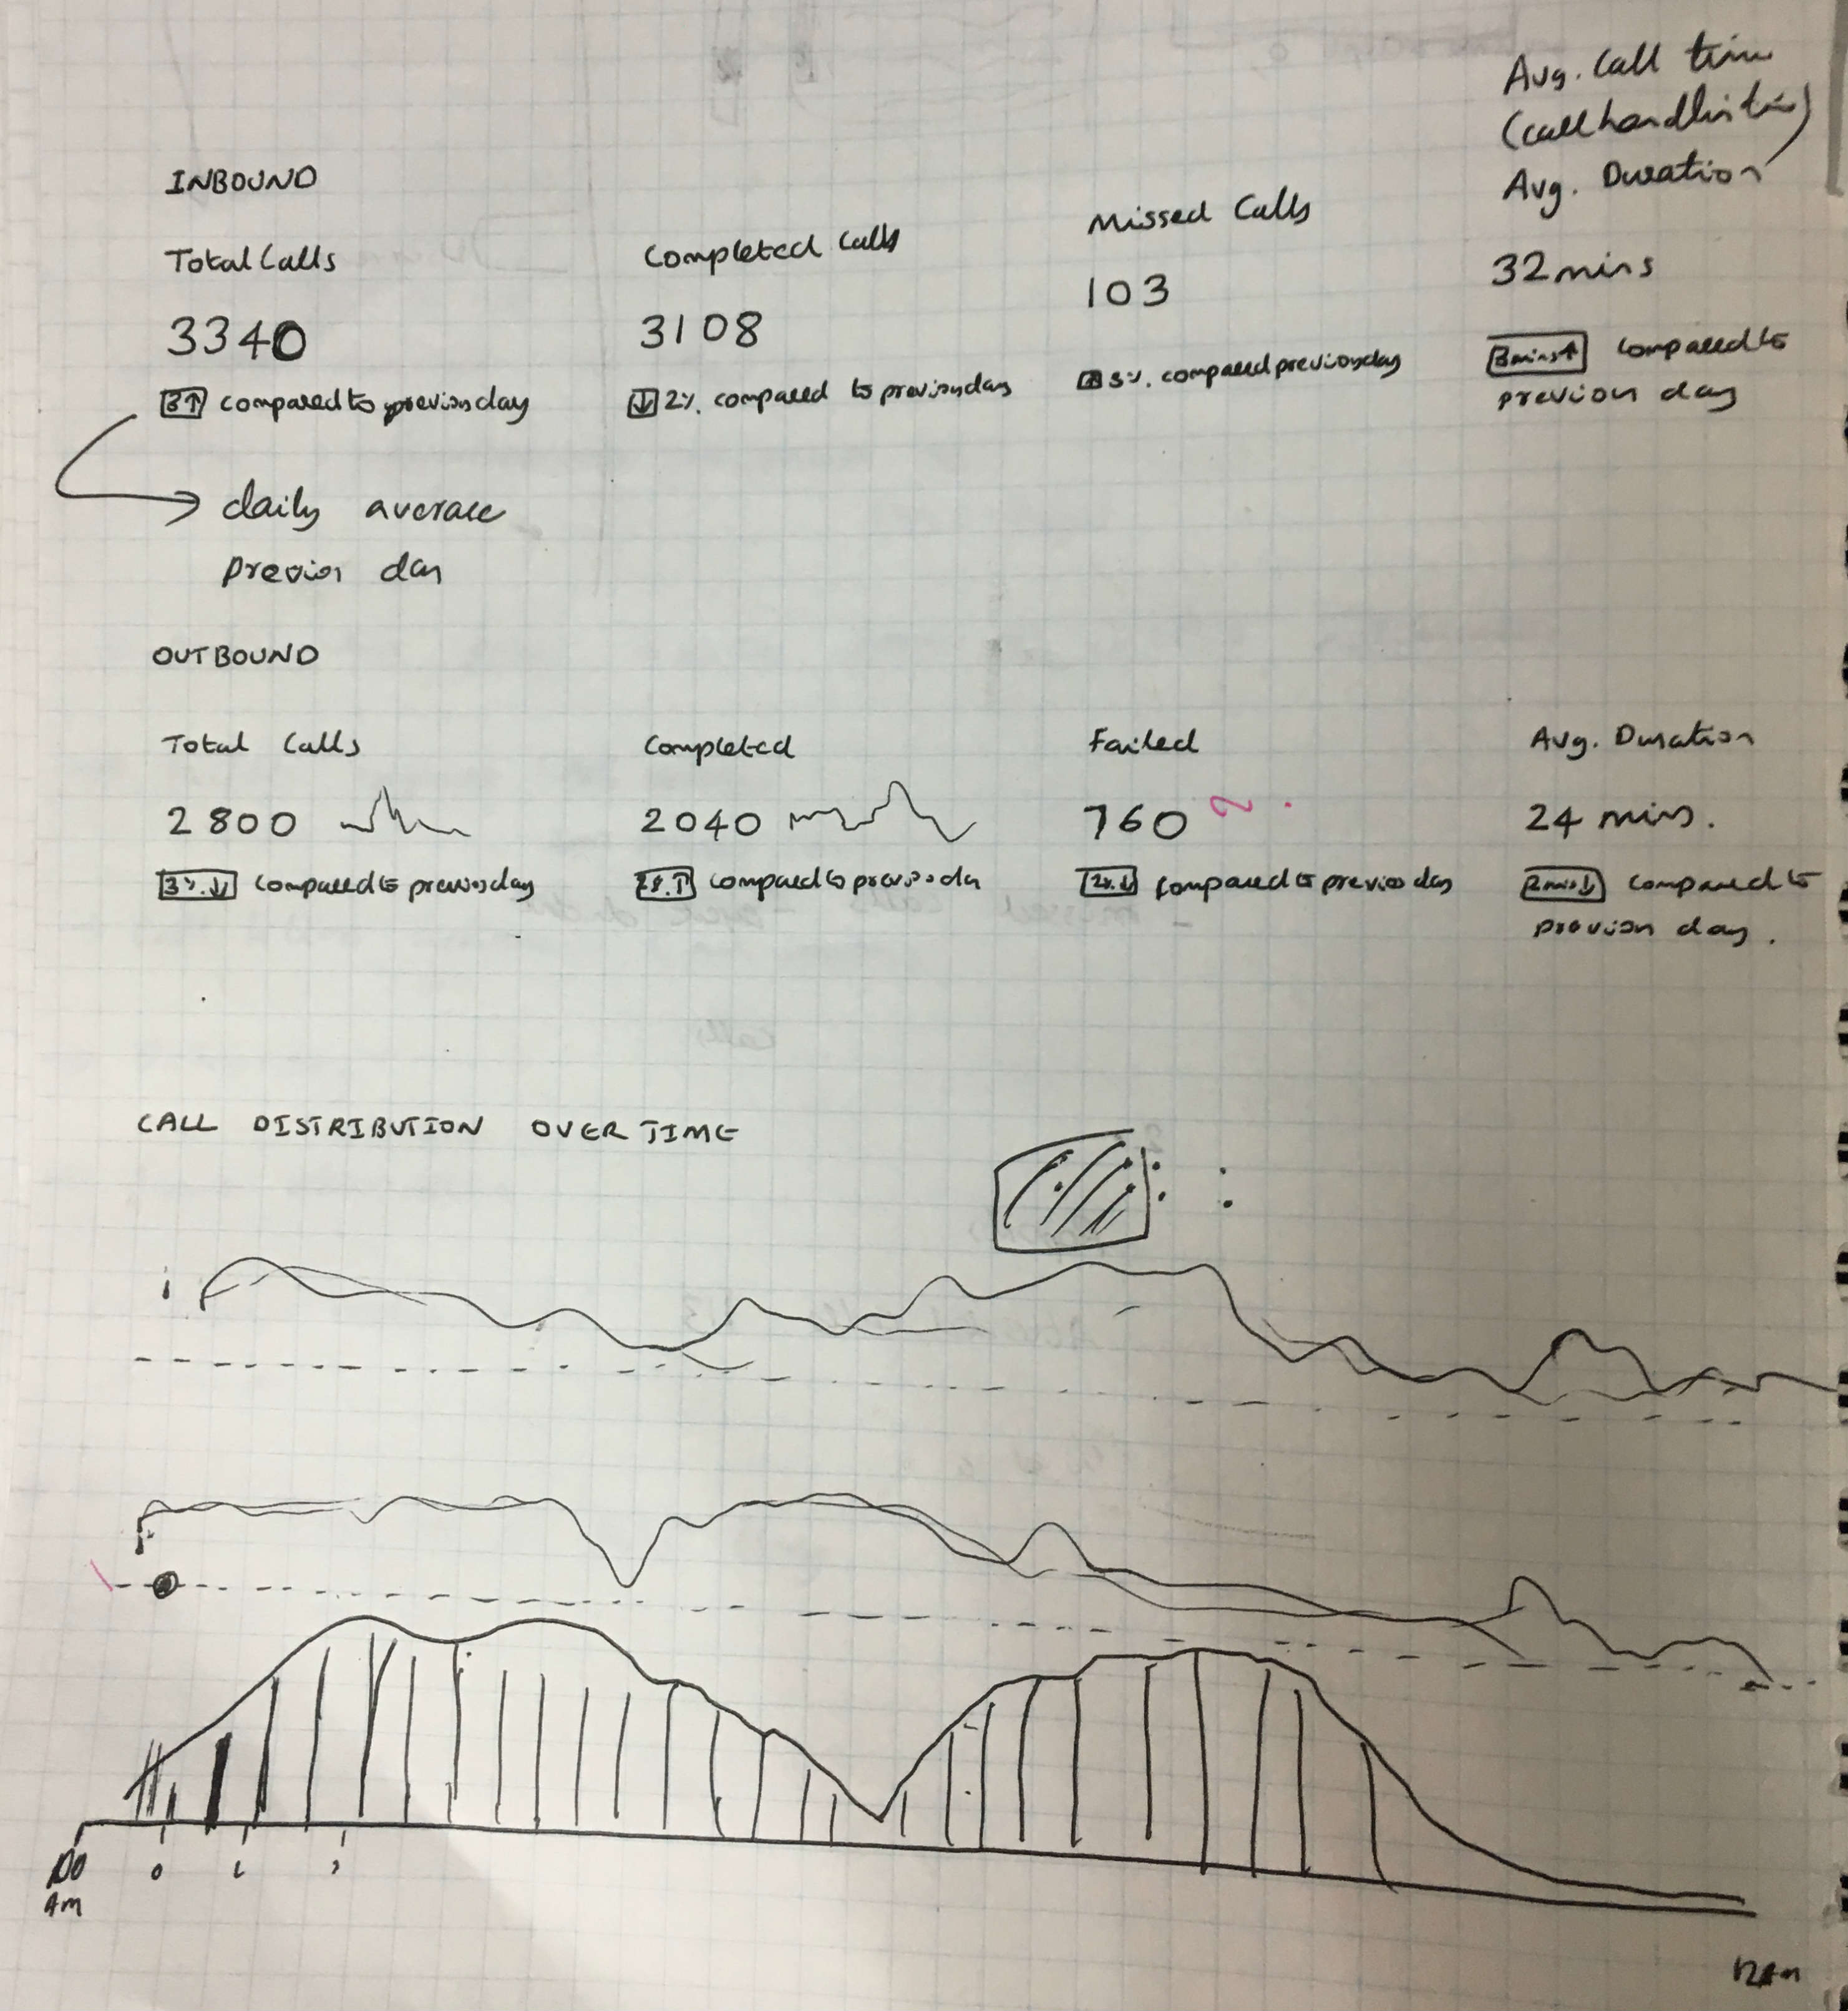 Avg. Call time
(call handling time)
Avg. Duration
INBOUND
Total Calls
3340
3↑ compared to previous day
Completed Calls
3108
↓ 2%. compared to previous day
Missed Calls
103
↑ 3%. compared previous day
32 mins
3mins↑ compared to
previous day
daily average
previous day
OUTBOUND
Total Calls
2800
3%.↓ compared to previous day
Completed
2040
2%.↑ compared to previous day
Failed
760
2%.↓ compared to previous day
Avg. Duration
24 mins.
2mins↓ compared to
previous day.
CALL DISTRIBUTION OVER TIME
Am
12Am